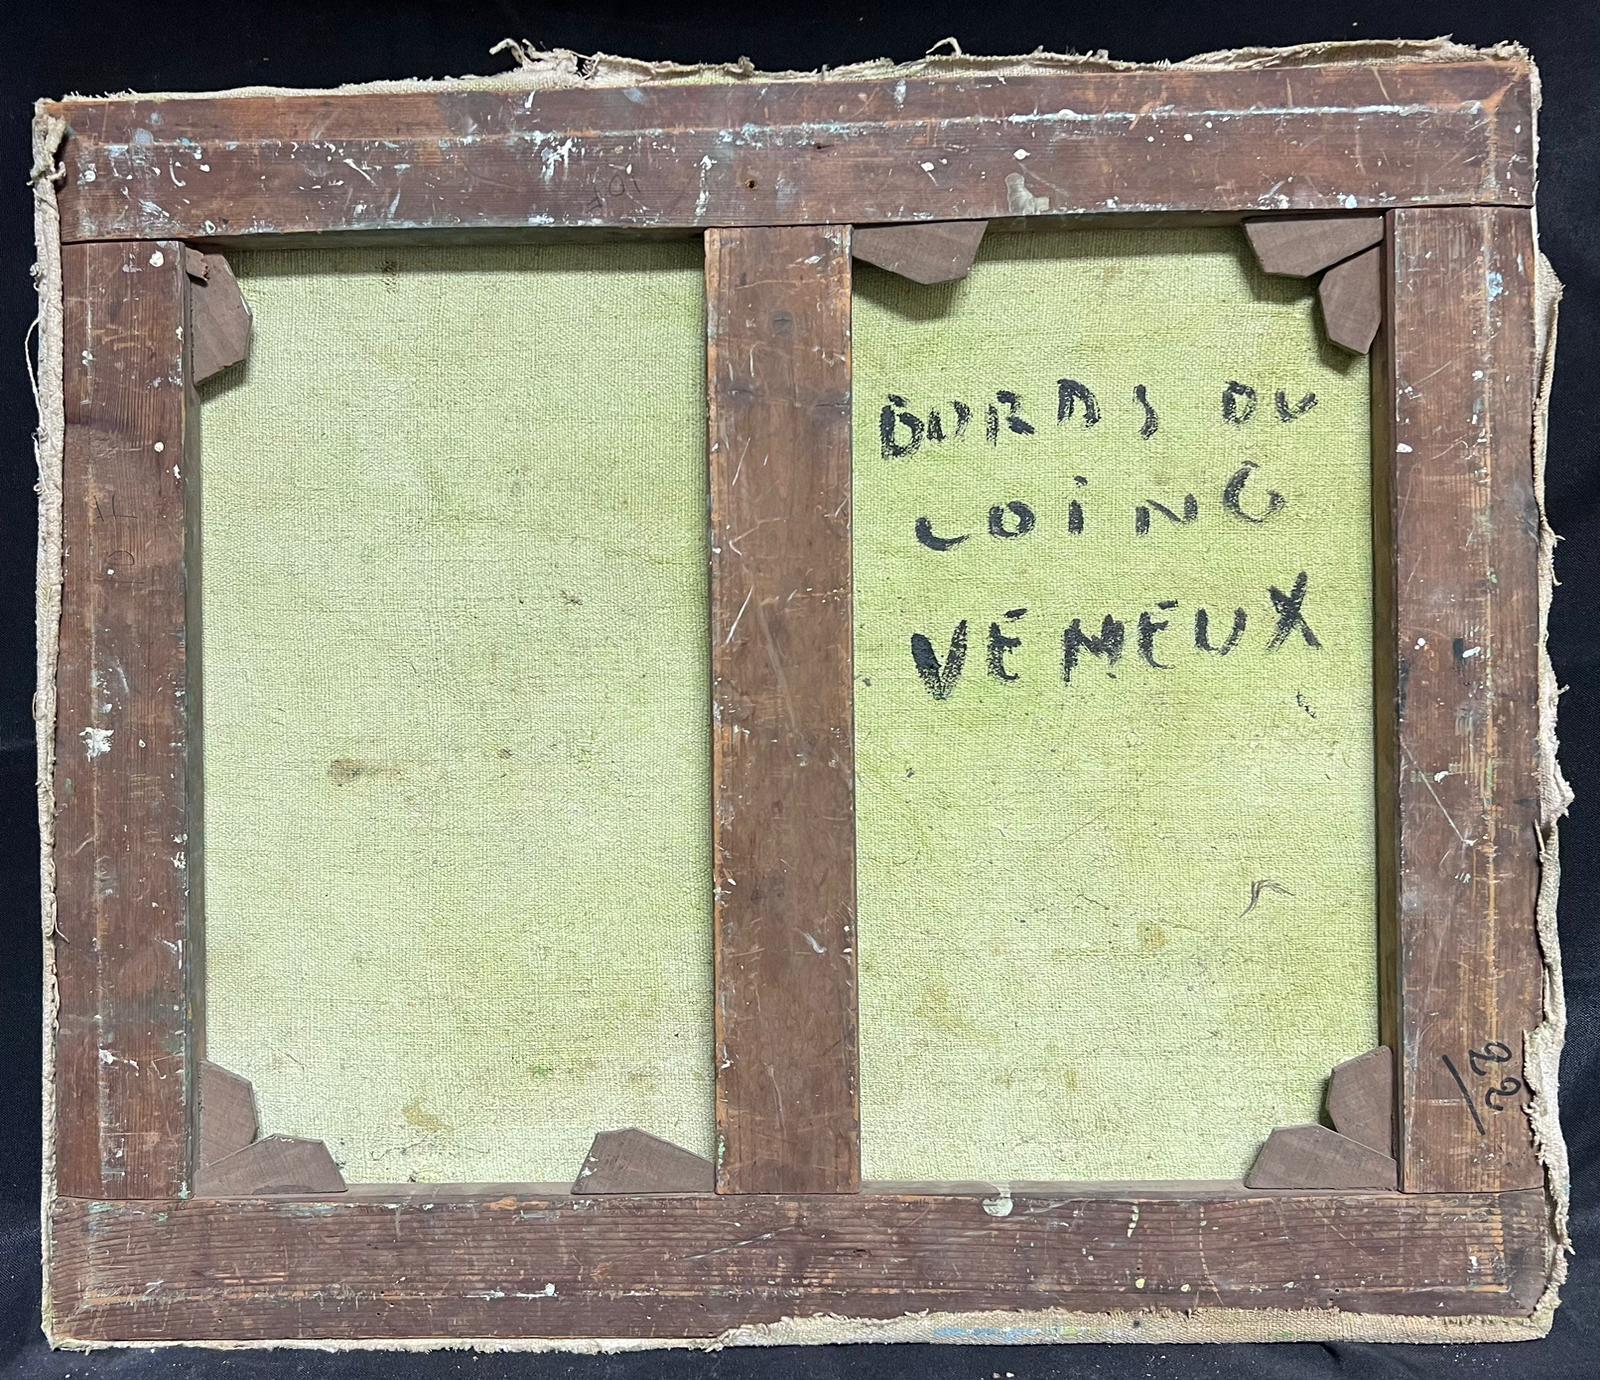 BORDS DU
LOING
VÉNEUX
22